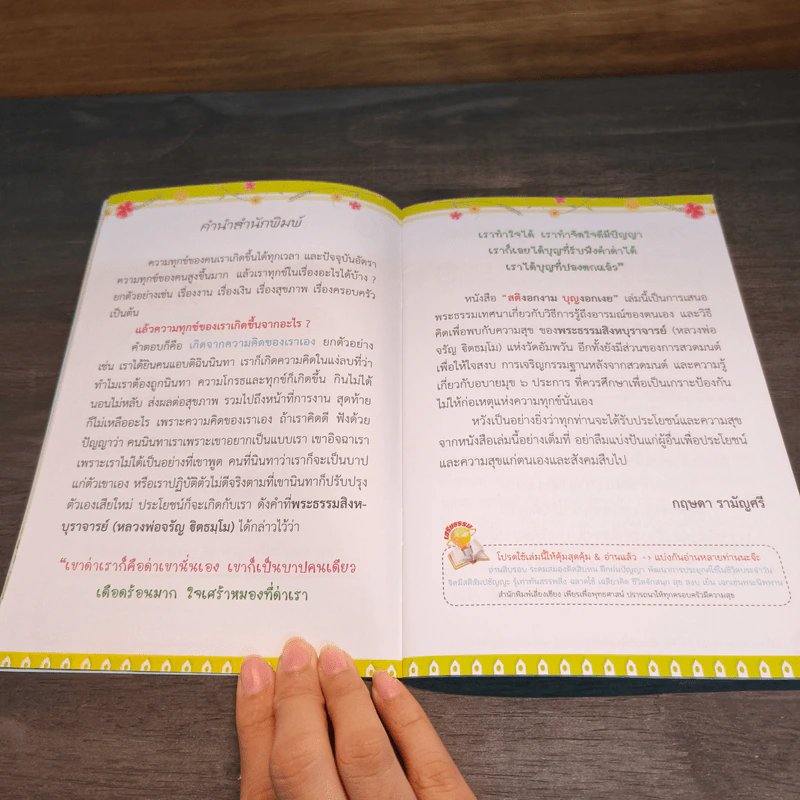 คำนำสำนักพิมพ์
ความทุกข์ของคนเราเกิดขึ้นได้ทุกเวลา และปัจจุบันอัตรา
ความทุกข์ของคนสูงขึ้นมาก แล้วเราทุกข์ในเรื่องอะไรได้บ้าง ?
ยกตัวอย่างเช่น เรื่องงาน เรื่องเงิน เรื่องสุขภาพ เรื่องครอบครัว
เป็นต้น
แล้วความทุกข์ของเราเกิดขึ้นจากอะไร ?
คำตอบก็คือ เกิดจากความคิดของเราเอง ยกตัวอย่าง
เช่น เราได้ยินคนแอบติฉินนินทา เราก็เกิดความคิดในแง่ลบที่ว่า
ทำไมเราต้องถูกนินทา ความโกรธและทุกข์ก็เกิดขึ้น กินไม่ได้
นอนไม่หลับ ส่งผลต่อสุขภาพ รวมไปถึงหน้าที่การงาน สุดท้าย
ก็ไม่เหลืออะไร เพราะความคิดของเราเอง ถ้าเราคิดดี ฟังด้วย
ปัญญาว่า คนนินทาเราเพราะเขาอยากเป็นแบบเรา เขาอิจฉาเรา
เพราะเราไม่ได้เป็นอย่างที่เขาพูด คนที่นินทาว่าเราก็จะเป็นบาป
แก่ตัวเขาเอง หรือเราปฏิบัติตัวไม่ดีจริงตามที่เขานินทาก็ปรับปรุง
ตัวเองเสียใหม่ ประโยชน์ก็จะเกิดกับเรา ดังคำที่พระธรรมสิงห-
บุราจารย์ (หลวงพ่อจรัญ ฐิตธมฺโม) ได้กล่าวไว้ว่า
“เขาด่าเราก็คือด่าเขานั่นเอง เขาก็เป็นบาปคนเดียว
เดือดร้อนมาก ใจเศร้าหมองที่ด่าเรา
เราทำใจได้ เราทำจิตใจดีมีปัญญา
เราก็เลยได้บุญที่รับฟังคำด่าได้
เราได้บุญที่ปลงตกแล้ว”
หนังสือ “สติงอกงาม บุญงอกเงย” เล่มนี้เป็นการเสนอ
พระธรรมเทศนาเกี่ยวกับวิธีการรู้ถึงอารมณ์ของตนเอง และวิธี
คิดเพื่อพบกับความสุข ของพระธรรมสิงหบุราจารย์ (หลวงพ่อ
จรัญ ฐิตธมฺโม) แห่งวัดอัมพวัน อีกทั้งยังมีส่วนของการสวดมนต์
เพื่อให้ใจสงบ การเจริญกรรมฐานหลังจากสวดมนต์ และความรู้
เกี่ยวกับอบายมุข ๖ ประการ ที่ควรศึกษาเพื่อเป็นเกราะป้องกัน
ไม่ให้ก่อเหตุแห่งความทุกข์นั่นเอง
หวังเป็นอย่างยิ่งว่าทุกท่านจะได้รับประโยชน์และความสุข
จากหนังสือเล่มนี้อย่างเต็มที่ อย่าลืมแบ่งปันแก่ผู้อื่นเพื่อประโยชน์
และความสุขแก่ตนเองและสังคมสืบไป
กฤษดา รามัญศรี
เสริมธรรม
โปรดใช้เล่มนี้ให้คุ้มสุดคุ้ม & อ่านแล้ว -> แบ่งกันอ่านหลายท่านนะจ๊ะ
สำนักพิมพ์เลี่ยงเชียง เพียรเพื่อพุทธศาสน์ ปรารถนาให้ทุกครอบครัวมีความสุข